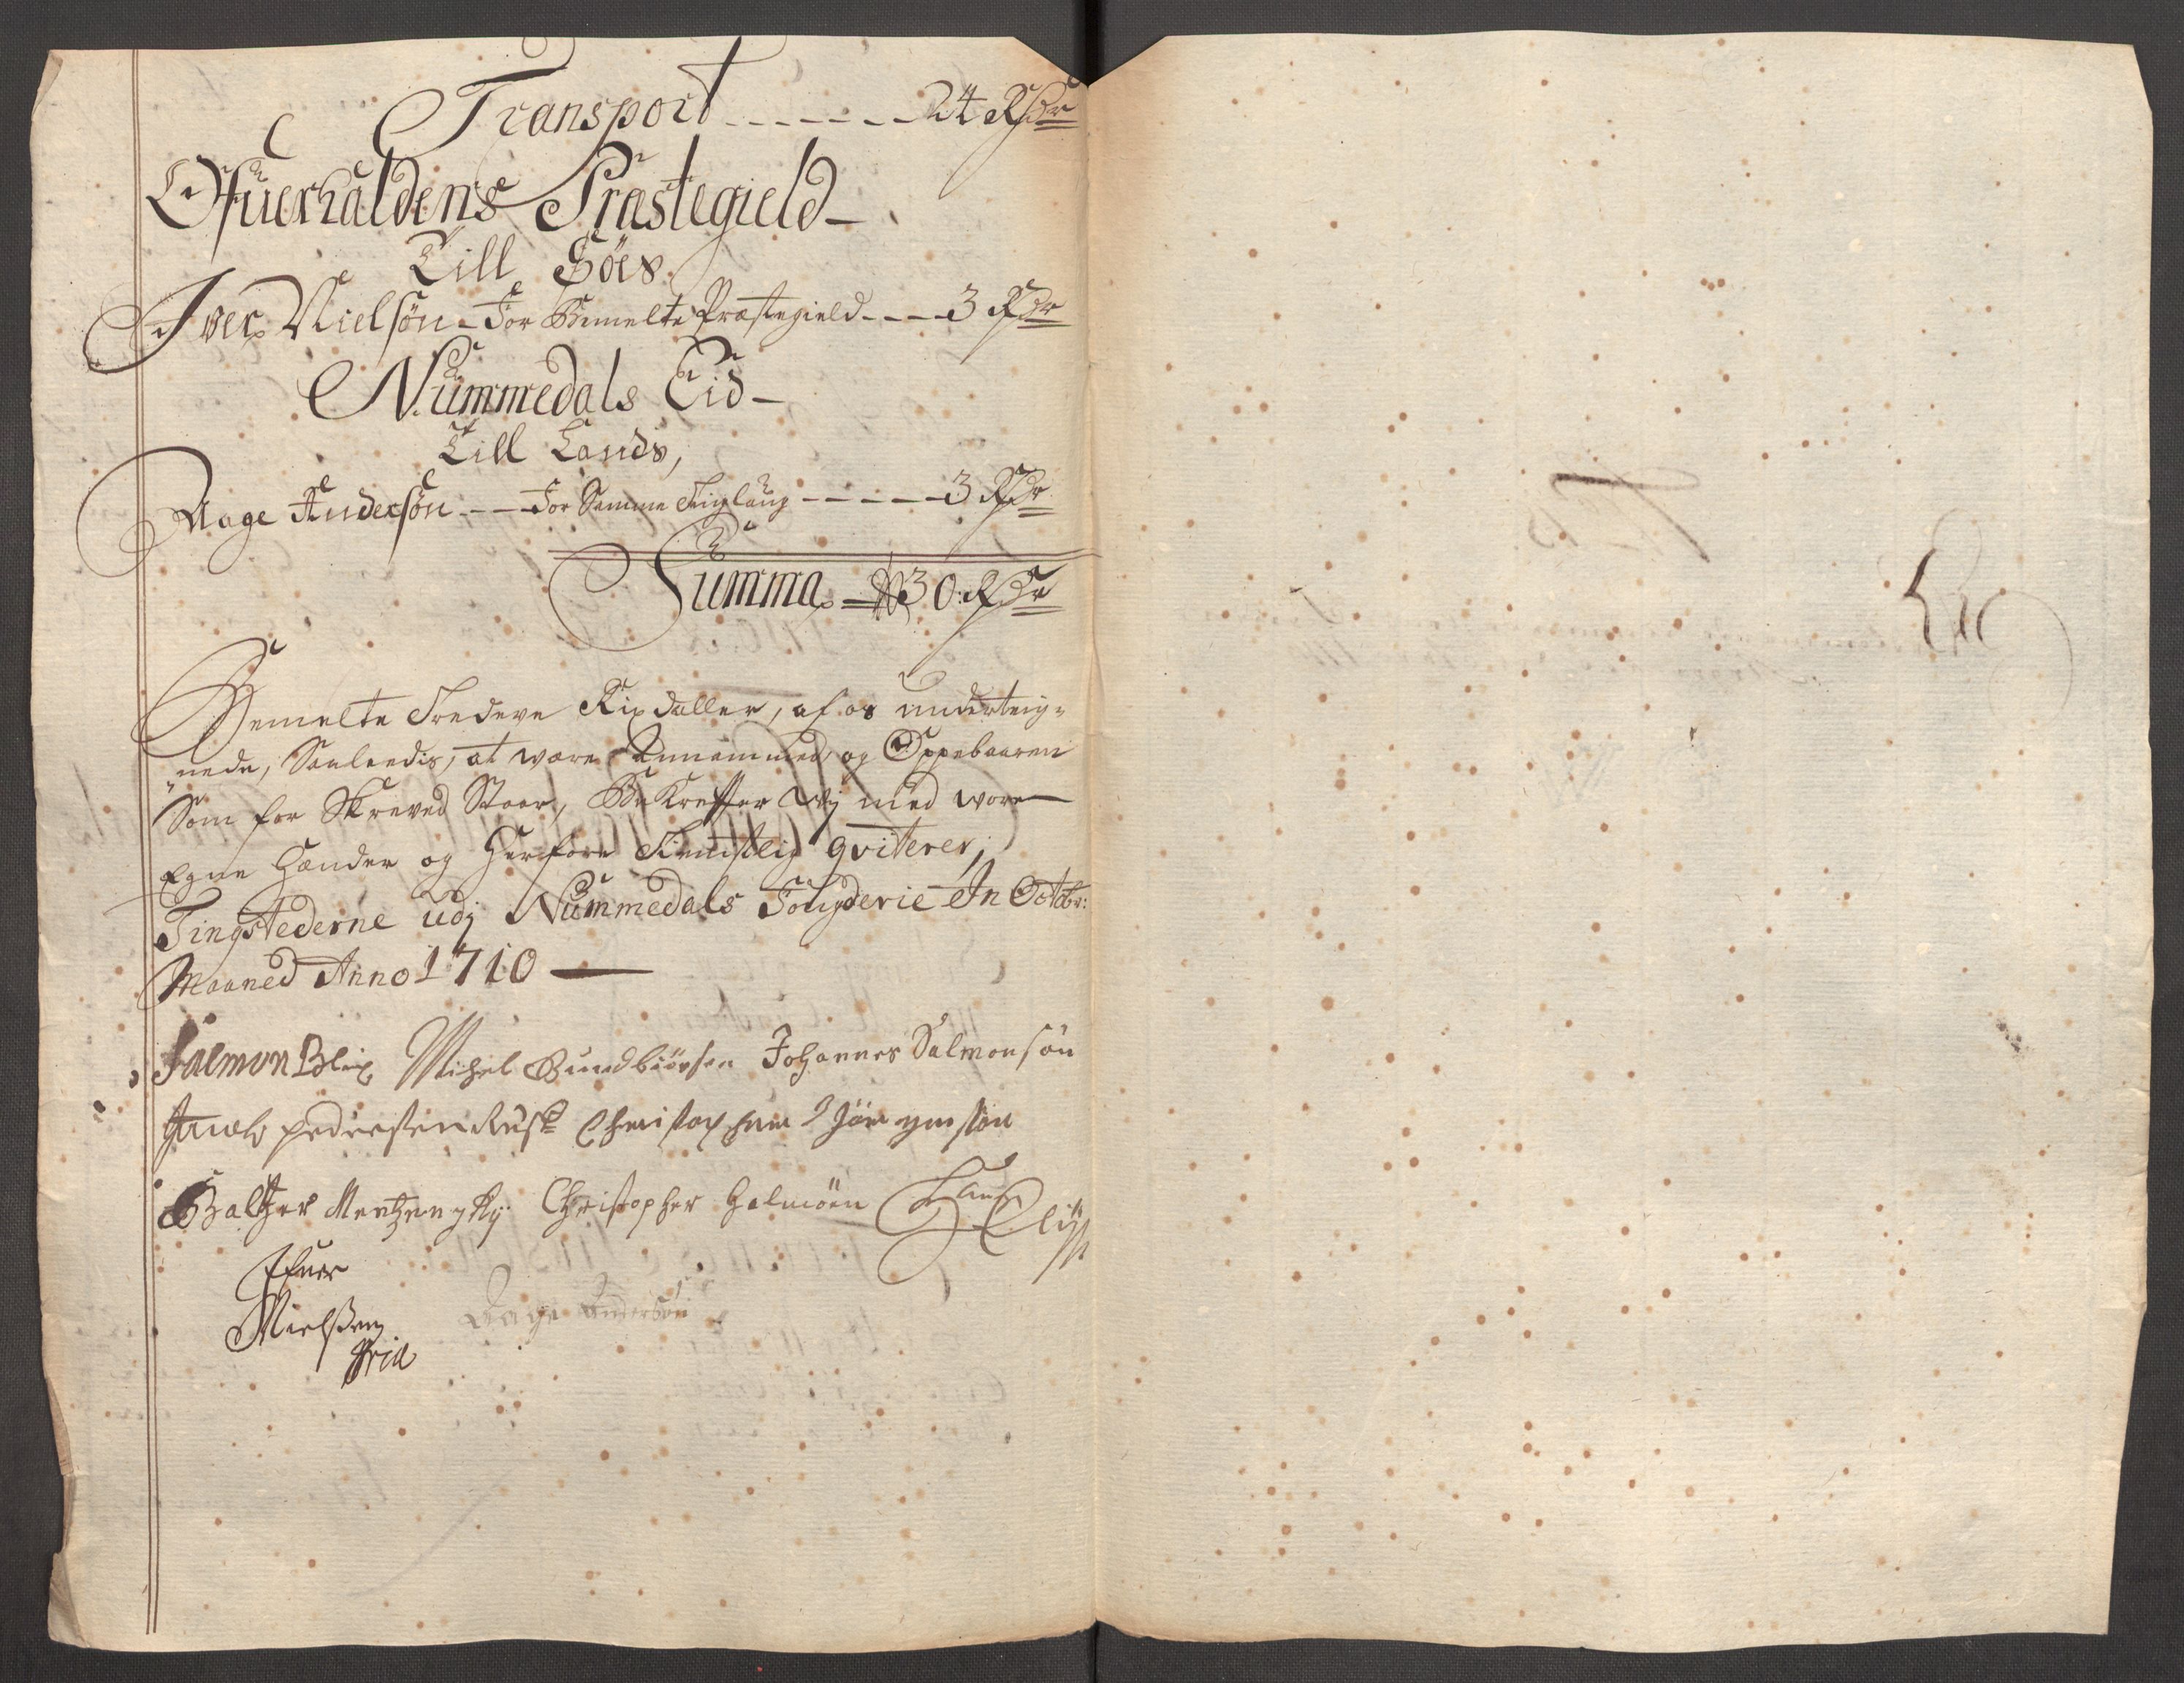 Transport - - - - - - 24 Rdr
Ofuerhaldens Præstegield -
Till Söes
Iver Nielsön - For Bemelte Præstegield - - - 3 Rdr
Nummedals Eid -
Till Lands,
Aage Andersön - - - For Samme Tinglaug - - - - - 3 Rdr
Summa - 30 Rdr
Bemelte Tredeve Rixdaller, af os underteig-
nede, Saaleedis, at være Annammed og Oppebaaren
Som for Skreved Staar, Bekrefter Wj med vore
Egne Hænder og Herfore Tienstlig qviterer,
Tingstederne udj Nummedals Fougderie In Octobr:
Maaned Anno 1710
Salmon Blix Michel Gundbiörsen Johannes Salmonsön
pedersen Rusk Christopher
Baltzer Christopher Halmöen Hans
Ifuer
Nielßen
Aage Anderson